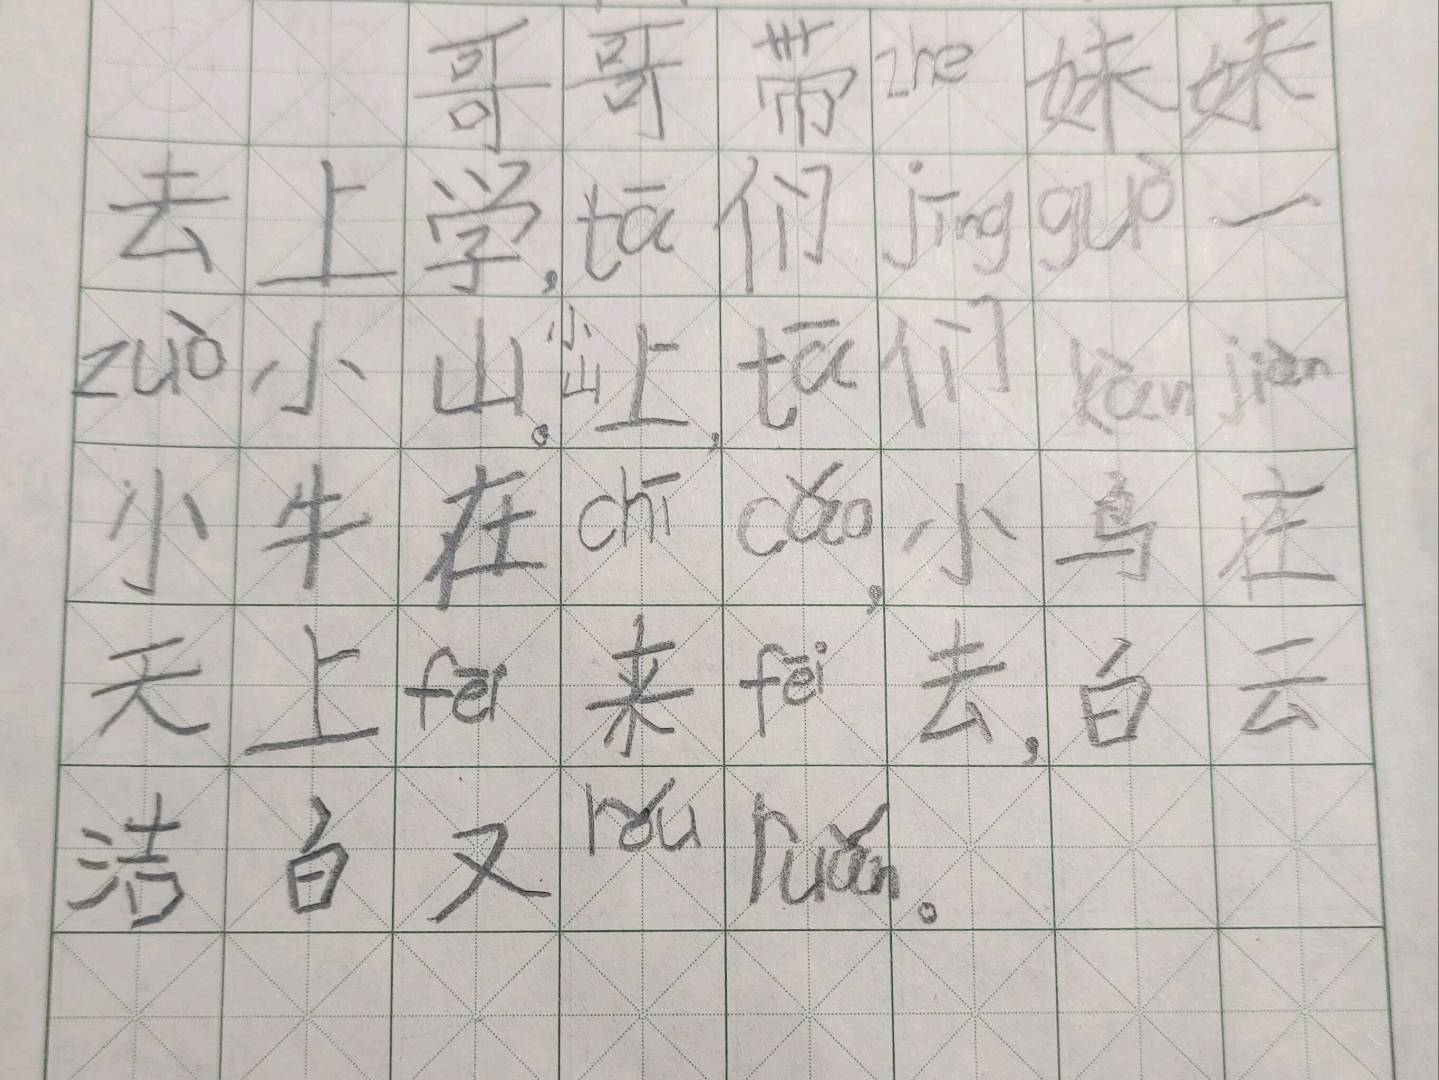 哥哥带zhe妹妹
去上学,tā们jīngguò一
zuò小山。小山上,tā们kànjiàn
小牛在chīcǎo,小鸟在
天上fēi来fēi去,白云
洁白又rǒuruǎn。